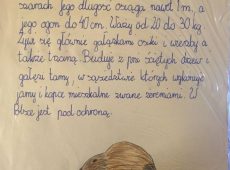 szarach Jego długość osiąga nawet 1m, a
jego ogon do 40 cm. Waży od 20 do 30 kg.
Żywi się głównie gałązkami osiki i wierzby a
także trzciną. Buduje z pni ściętych drzew i
gałęzi tamy, w sąsiedztwie których wykonuje
jamy i kopce mieszkalne zwane żeremiami. W
Polsce jest pod ochroną.